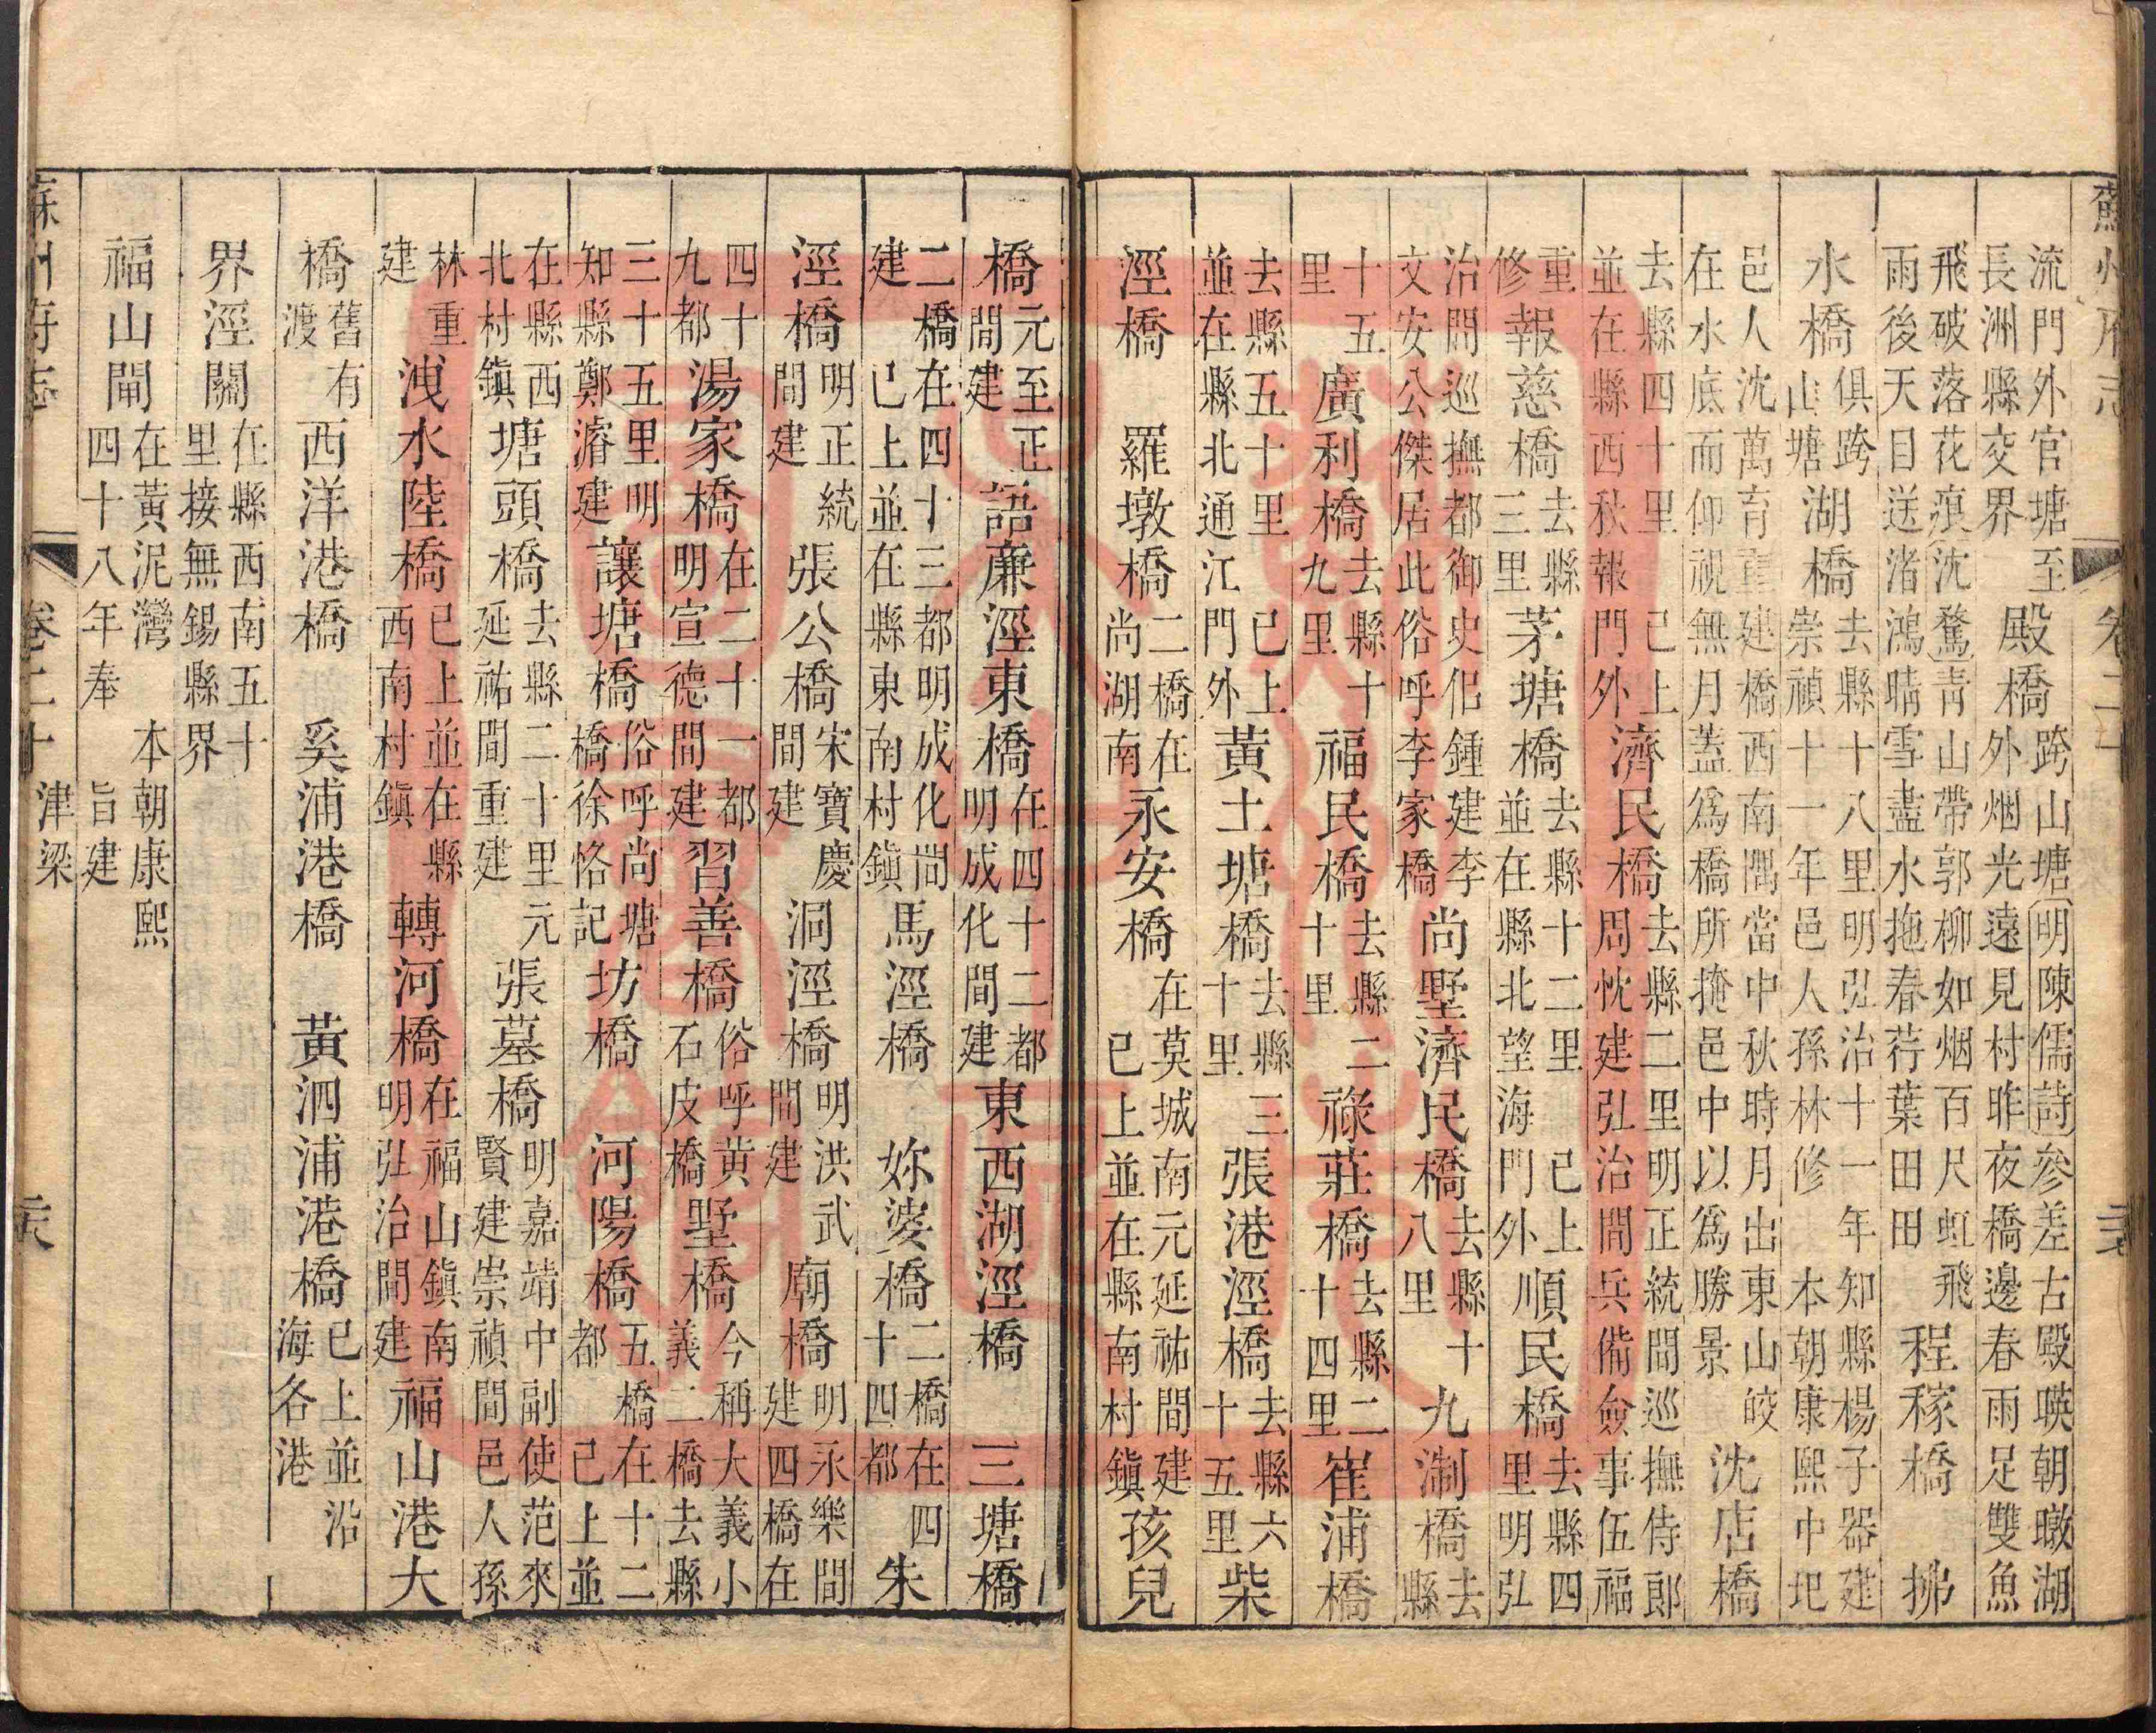 蘇州府志 卷二十
流門外官塘至長洲縣交界 殿橋 跨山塘明陳儒詩參差古殿暎朝暾湖外烟光遠見村昨夜橋邊春雨足雙魚
飛破落花痕沈騖青山帶郭柳如烟百尺虹飛雨後天目送渚鴻晴雪盡水拖春荇葉田田 程稼橋 拂
水橋 俱跨山塘 湖橋 去縣十八里明弘治十一年知縣楊子器建崇禎十一年邑人孫林修 本朝康熙中圯
邑人沈萬育重建橋西南隅當中秋時月出東山皎在水底而仰視無月蓋爲橋所掩邑中以爲勝景 沈店橋
去縣四十里 已上並在縣西秋報門外 濟民橋 去縣二里明正統間巡撫侍郎周忱建弘治間兵備僉事伍福
重修 報慈橋 去縣三里 茅塘橋 去縣十二里 已上並在縣北望海門外 順民橋 去縣四里明弘
治間巡撫都御史侣鍾建李文安公傑居此俗呼李家橋 尚墅濟民橋 去縣十八里 九淛橋 去縣
十五里 廣利橋 去縣十九里 福民橋 去縣二十里 祿莊橋 去縣二十四里 崔浦橋
去縣五十里 已上並在縣北通江門外 黃土塘橋 去縣三十里 張港涇橋 去縣六十五里 柴
涇橋 羅墩橋 二橋在尚湖南 永安橋 在莫城南元延祐間建已上並在縣南村鎮 孩兒
橋 元至正間建 語廉涇東橋 在四十二都明成化間建 東西湖涇橋 三塘橋
二橋在四十三都明成化間建 已上並在縣東南村鎮 馬涇橋 妳婆橋 二橋在四十四都 朱
涇橋 明正統間建 張公橋 宋寶慶間建 洞涇橋 明洪武間建 廟橋 明永樂間建四橋在
四十九都 湯家橋 在二十一都明宣德間建 習善橋 俗呼黃石皮橋 墅橋 今稱大義小義二橋去縣
三十五里明知縣鄭濬建 讓塘橋 俗呼尚塘橋徐恪記 坊橋 河陽橋 五橋在十二都 已上並
在縣西北村鎮 塘頭橋 去縣二十里元延祐間重建 張墓橋 明嘉靖中副使范來賢建崇禎間邑人孫
林重建 洩水陸橋 已上並在縣西南村鎮 轉河橋 在福山鎮南明弘治間建 福山港大
橋 舊有渡 西洋港橋 奚浦港橋 黃泗浦港橋 已上並沿海各港
界涇關 在縣西南五十里接無錫縣界
福山閘 在黃泥灣 本朝康熙四十八年奉 旨建
蘇州府志 卷二十 津梁